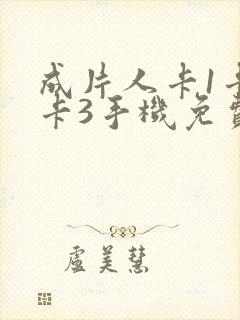 成片人卡1卡
卡3手機免費
盧美慧